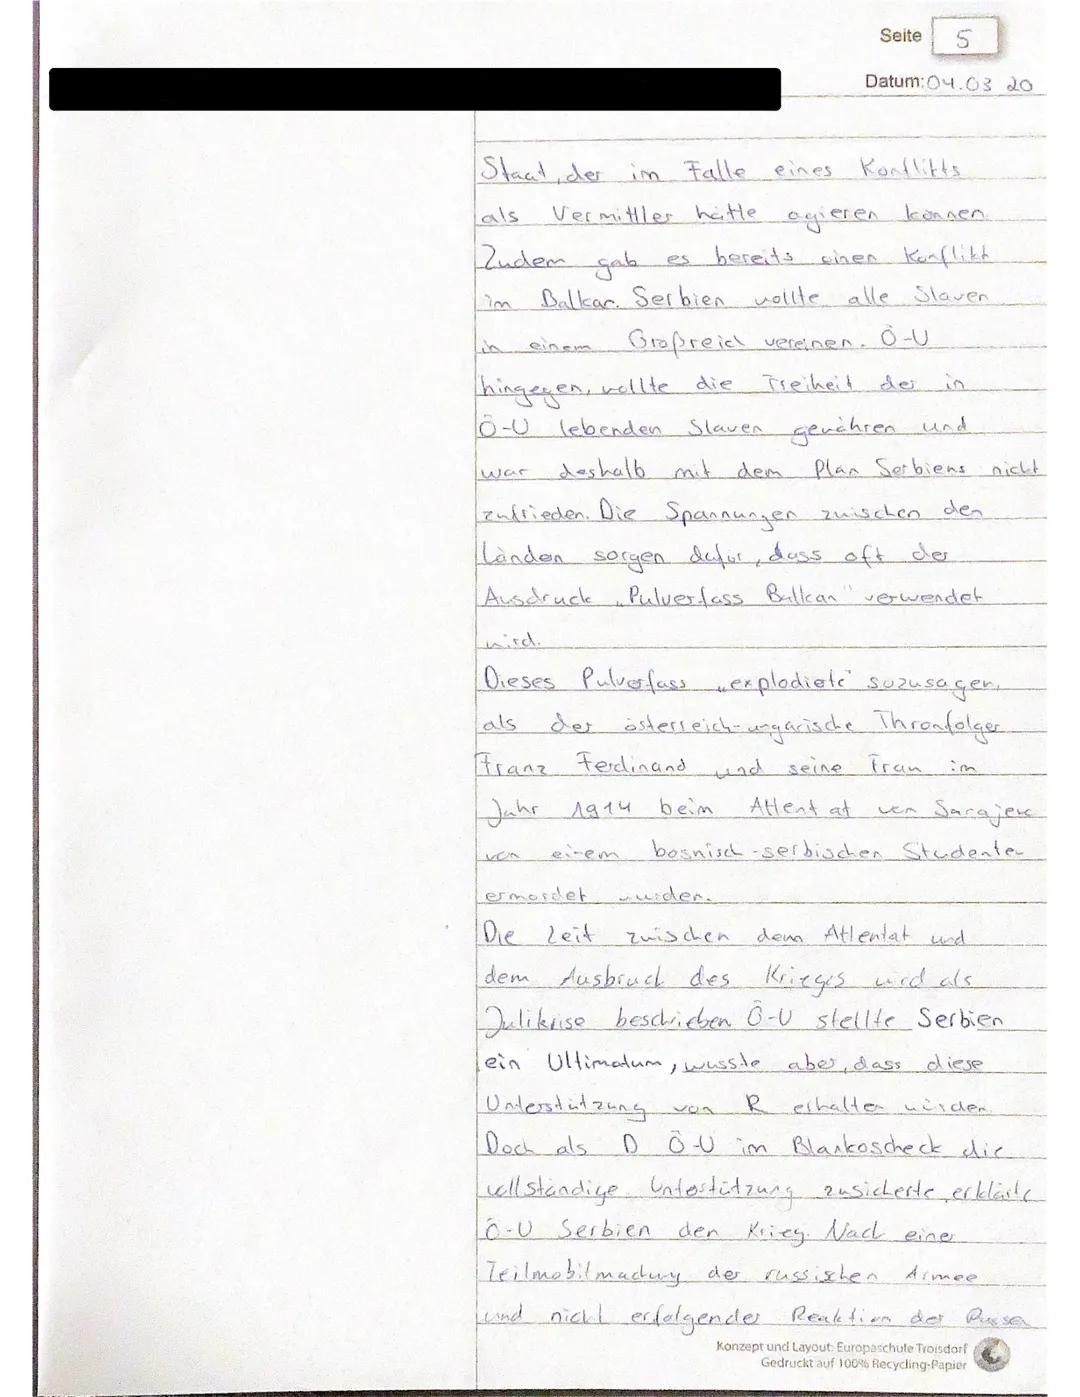 Seite 5
Datum: 04.03 20
Staat, der im Falle eines Konflikts
als Vermittler hätte agieren können.
Zudem gab es bereits einen Konflikt
im Balkan. Serbien wollte alle Slaven
in einem Großreich vereinen. Ö-U
hingegen, wollte die Freiheit der in
Ö-U lebenden Slaven gewähren und
war deshalb mit dem Plan Serbiens nicht
zufrieden. Die Spannungen zwischen den
Länden sorgen dafür, dass oft der
Ausdruck „Pulverfass Balkan" verwendet
wird.
Dieses Pulverfass „explodiete" sozusagen,
als der österreich-ungarische Thronfolger
Franz Ferdinand und seine Frau im
Jahr 1914 beim Attentat von Sarajevo
von einem bosnisch-serbischen Studenten
ermordet wurden.
Die Zeit zwischen dem Attentat und
dem Ausbruch des Krieges wird als
Julikrise beschrieben. Ö-U stellte Serbien
ein Ultimatum, wusste aber, dass diese
Unterstützung von R erhalten würden.
Doch als D Ö-U im Blankoscheck die
vollständige Unterstützung zusicherte, erklärte
Ö-U Serbien den Krieg. Nach einer
Teilmobilmachung der russischen Armee
und nicht erfolgender Reaktion der Russen
Konzept und Layout: Europaschule Troisdorf
Gedruckt auf 100% Recycling-Papier